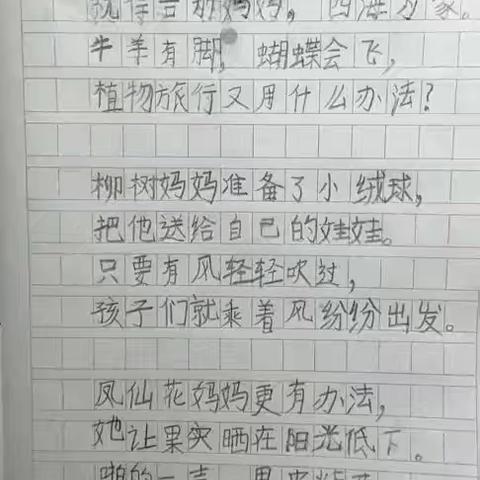 就得告别妈妈，四海为家。
牛羊有脚，蝴蝶会飞，
植物旅行又用什么办法？
柳树妈妈准备了小绒球，
把他送给自己的娃娃。
只要有风轻轻吹过，
孩子们就乘着风纷纷出发。
凤仙花妈妈更有办法，
她让果实晒在阳光低下。
啪的一声，果